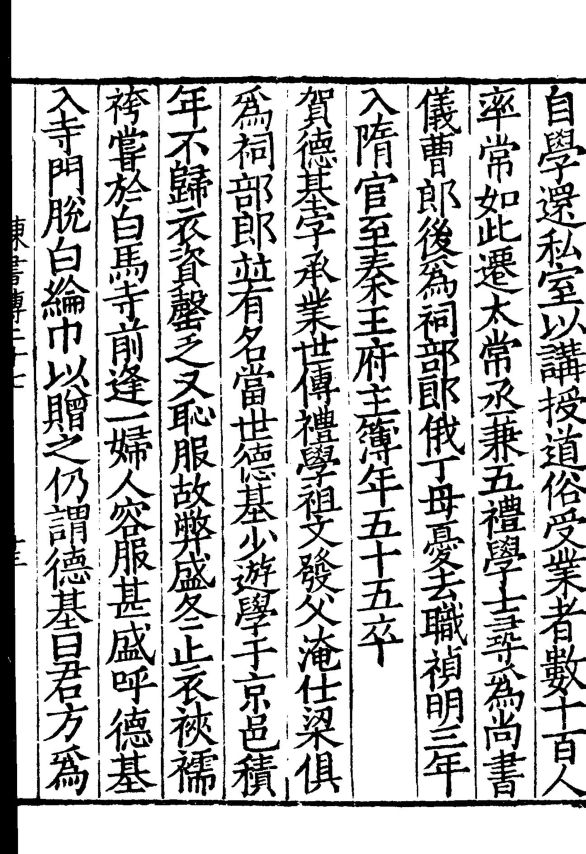 自學還私室以講授道俗受業者數十百人
率常如此遷太常丞兼五禮學士尋爲尚書
儀曹郎後爲祠部郎俄丁母憂去職禎明三年
入隋官至秦王府主簿年五十五卒
賀德基字承業世傳禮學祖文發父淹仕梁俱
爲祠部郎並有名當世德基少遊學于京邑積
年不歸衣資罄乏又恥服故弊盛冬止衣裌襦
袴嘗於白馬寺前逢一婦人容服甚盛呼德基
入寺門脫白綸巾以贈之仍謂德基曰君方爲